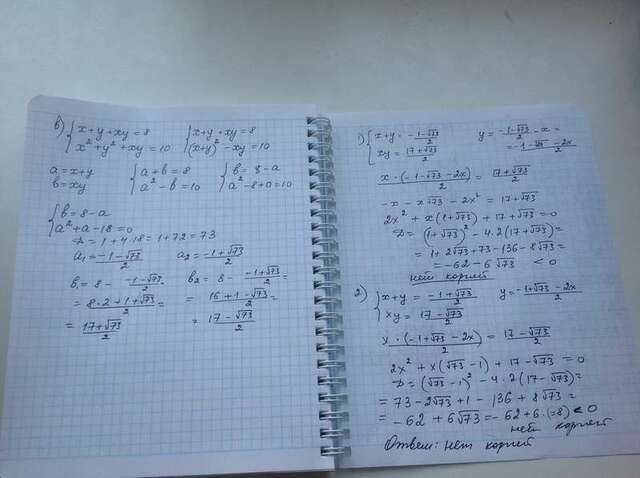 в) {x+y+xy=8   {x+y+xy=8
x²+y²+xy=10   (x+y)²-xy=10
a=x+y   {a+b=8   {b=8-a
b=xy   a²-b=10   a²-8+a=10
{b=8-a
a²+a-18=0
D=1+4·18=1+72=73
a₁=(-1-√73)/2   a₂=(-1+√73)/2
b₁=8-(-1-√73)/2=   b₂=8-(-1+√73)/2=
=(8·2+1+√73)/2   =(16+1-√73)/2=
=(17+√73)/2   =(17-√73)/2
1) {x+y=(-1-√73)/2   y=(-1-√73)/2-x=
xy=(17+√73)/2   =(-1-√73-2x)/2
x·(-1-√73-2x)/2=(17+√73)/2
-x-x√73-2x²=17+√73
2x²+x(1+√73)+17+√73=0
D=(1+√73)²-4·2(17+√73)=
=1+2√73+73-136-8√73=
=-62-6√73<0
нет корней
2) {x+y=(-1+√73)/2   y=(-1+√73-2x)/2
xy=(17-√73)/2
x·(-1+√73-2x)/2=(17-√73)/2
2x²+x(√73-1)+17-√73=0
D=(√73-1)²-4·2(17-√73)=
=73-2√73+1-136+8√73=
=-62+6√73=-62+6·(≈8)<0
нет корней
Ответ: нет корней